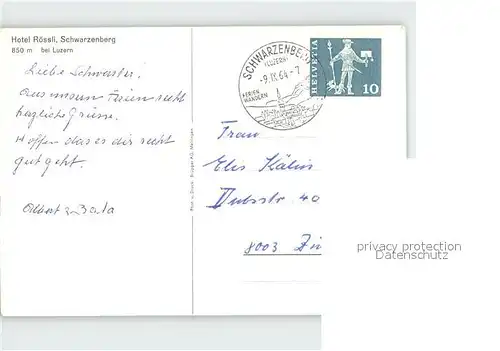 Hotel Rössli, Schwarzenberg
850 m bei Luzern
Liebe Schwester!
Aus unsern Ferien recht
herzliche Grüsse.
Hoffen das es dir recht
gut geht.
Albert
SCHWARZENBERG
(LUZERN)
-9.IX.64-7
FERIEN
WANDERN
HELVETIA
10
Frau
Elis Kälin
Dubsstr 40
8003 Zü
privacy protection
Datenschutz